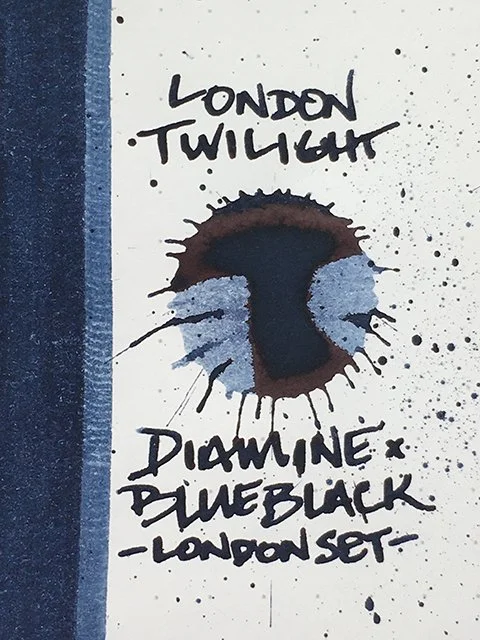 LONDON
TWILIGHT
DIAMINE x
BLUEBLACK
-LONDON SET-